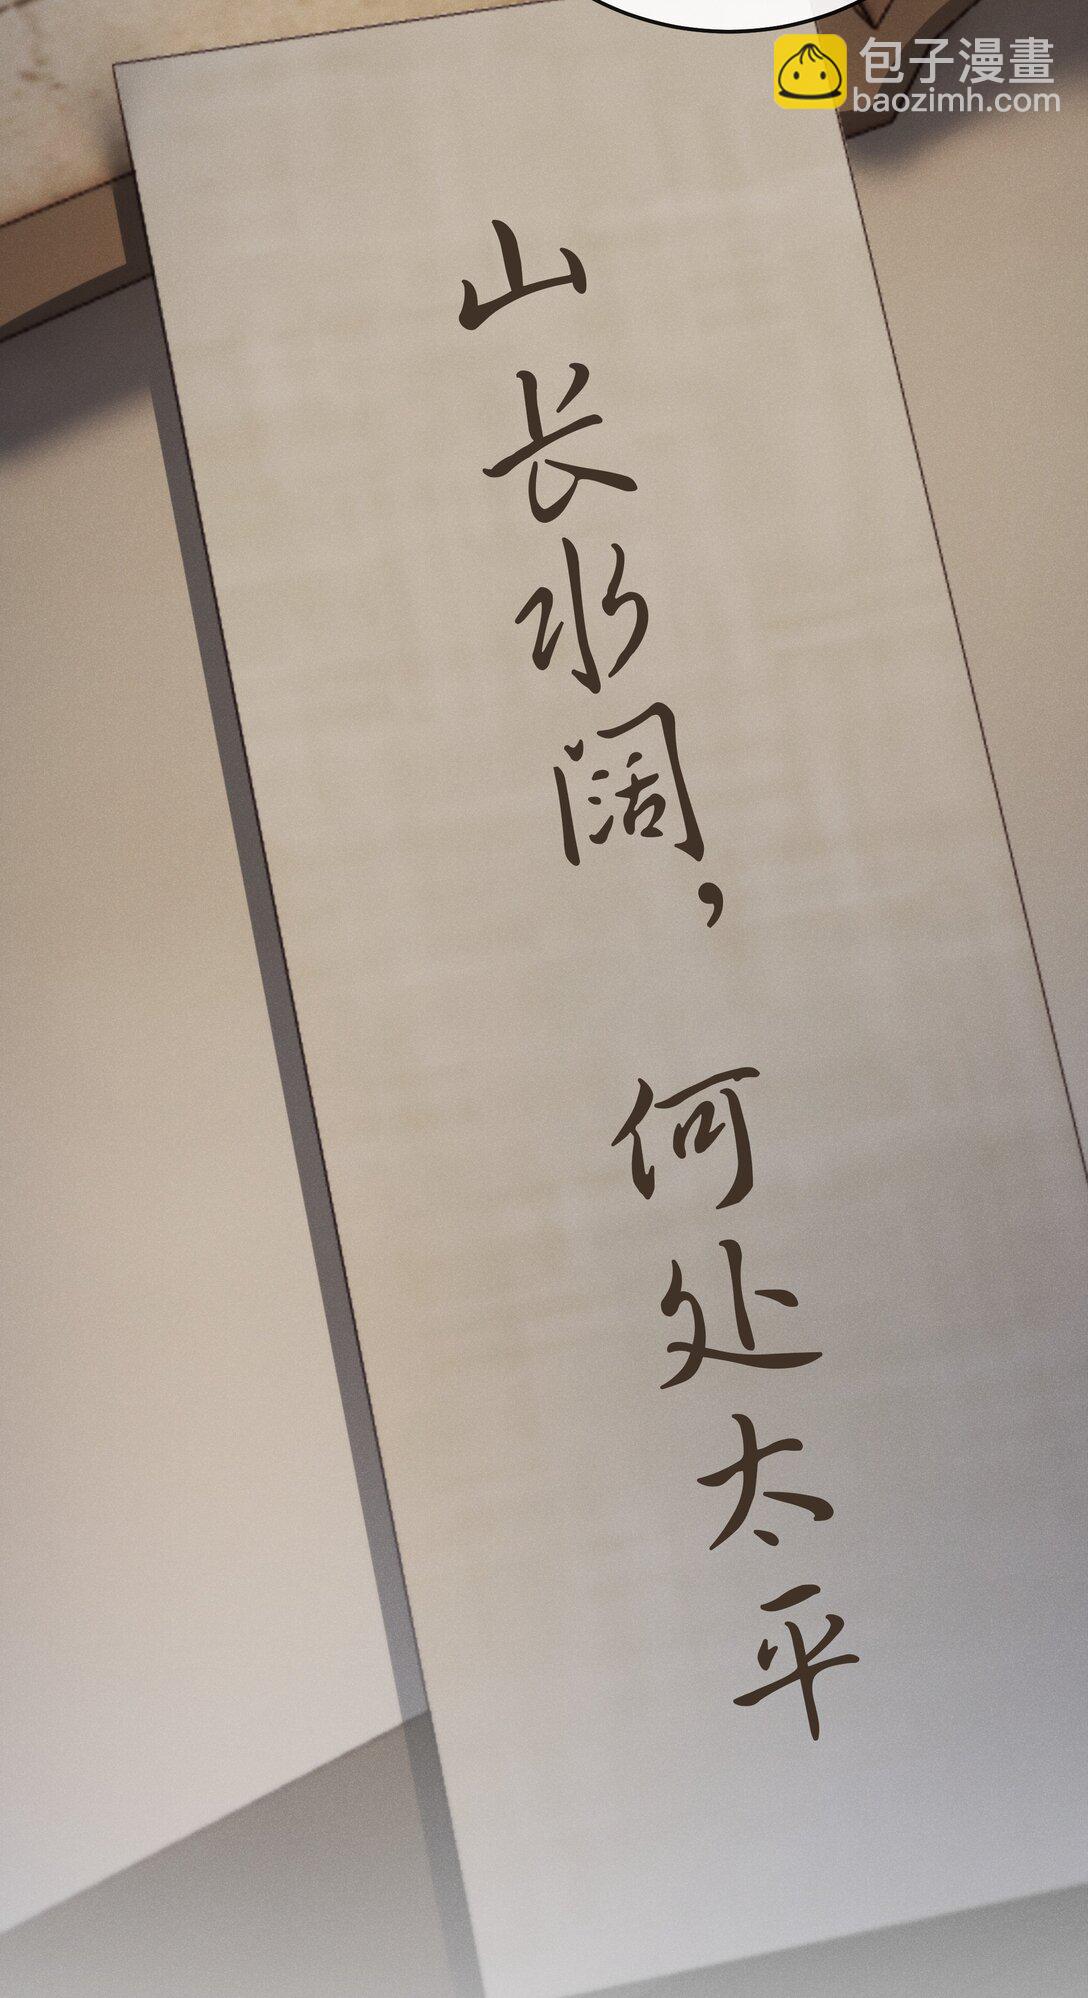 包子漫畫
baozimh.com
山长水阔，何处太平